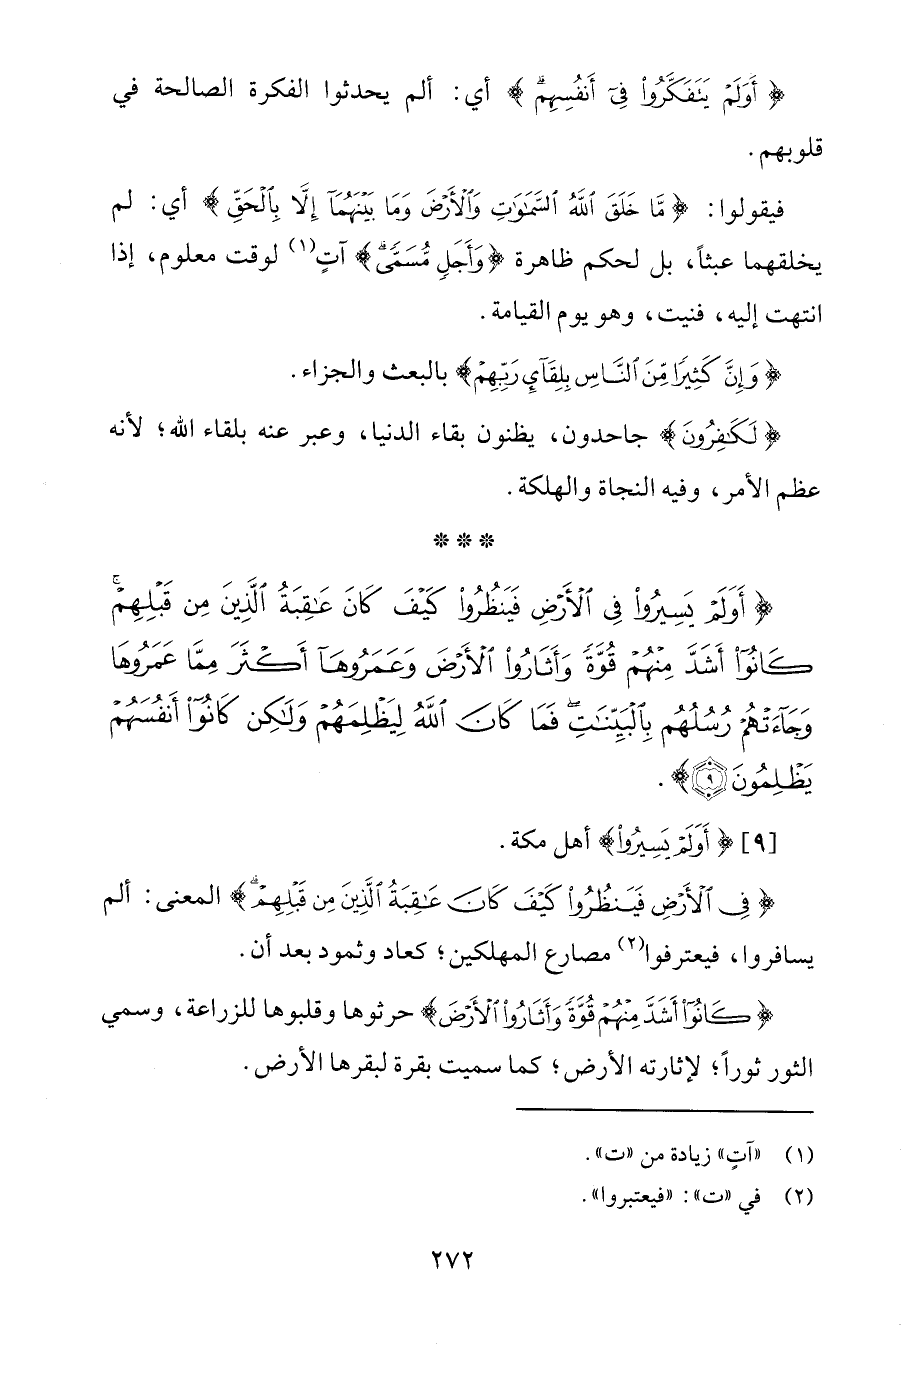 ﴿ أَوَلَمْ يَتَفَكَّرُوا۟ فِىٓ أَنفُسِهِم ۗ ﴾ أي: ألم يحدثوا الفكرة الصالحة في
قلوبهم.
فيقولوا: ﴿ مَّا خَلَقَ ٱللَّهُ ٱلسَّمَٰوَٰتِ وَٱلْأَرْضَ وَمَا بَيْنَهُمَآ إِلَّا بِٱلْحَقِّ ﴾ أي: لم
يخلقهما عبثاً، بل لحكم ظاهرة ﴿وَأَجَلٍ مُّسَمًّى ۗ﴾ آتٍ(١) لوقت معلوم، إذا
انتهت إليه، فنيت، وهو يوم القيامة.
﴿ وَإِنَّ كَثِيرًا مِّنَ ٱلنَّاسِ بِلِقَآئِ رَبِّهِمْ﴾ بالبعث والجزاء.
﴿ لَكَٰفِرُونَ﴾ جاحدون، يظنون بقاء الدنيا، وعبر عنه بلقاء الله؛ لأنه
عظم الأمر، وفيه النجاة والهلكة.
***
﴿ أَوَلَمْ يَسِيرُوا۟ فِى ٱلْأَرْضِ فَيَنظُرُوا۟ كَيْفَ كَانَ عَٰقِبَةُ ٱلَّذِينَ مِن قَبْلِهِمْ ۚ
كَانُوٓا۟ أَشَدَّ مِنْهُمْ قُوَّةً وَأَثَارُوا۟ ٱلْأَرْضَ وَعَمَرُوهَآ أَكْثَرَ مِمَّا عَمَرُوهَا
وَجَآءَتْهُمْ رُسُلُهُم بِٱلْبَيِّنَٰتِ ۖ فَمَا كَانَ ٱللَّهُ لِيَظْلِمَهُمْ وَلَٰكِن كَانُوٓا۟ أَنفُسَهُمْ
يَظْلِمُونَ ٩﴾.
[٩] ﴿ أَوَلَمْ يَسِيرُوا۟﴾ أهل مكة.
﴿ فِى ٱلْأَرْضِ فَيَنظُرُوا۟ كَيْفَ كَانَ عَٰقِبَةُ ٱلَّذِينَ مِن قَبْلِهِمْ ۗ﴾ المعنى: ألم
يسافروا، فيعترفوا(٢) مصارع المهلكين؛ كعاد وثمود بعد أن.
﴿ كَانُوٓا۟ أَشَدَّ مِنْهُمْ قُوَّةً وَأَثَارُوا۟ ٱلْأَرْضَ﴾ حرثوها وقلبوها للزراعة، وسمي
الثور ثوراً؛ لإثارته الأرض؛ كما سميت بقرة لبقرها الأرض.
(١) «آتٍ» زيادة من «ت».
(٢) في «ت»: «فيعتبروا».
٢٧٢